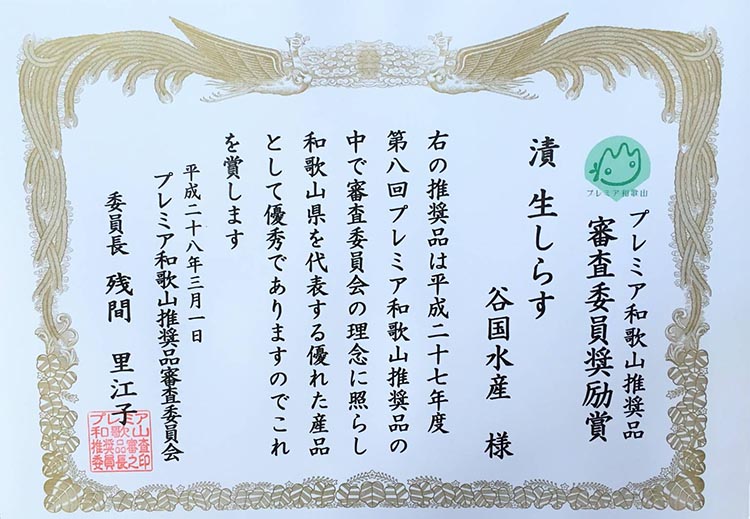 プレミア和歌山
プレミア和歌山推奨品
審査委員奨励賞
漬 生しらす
谷国水産 様
右の推奨品は平成二十七年度
第八回プレミア和歌山推奨品の
中で審査委員会の理念に照らし
和歌山県を代表する優れた産品
として優秀でありますのでこれ
を賞します
平成二十八年三月一日
プレミア和歌山推奨品審査委員会
委員長 残間 里江子
プレミア
和歌山
推奨品審査
委員長之印